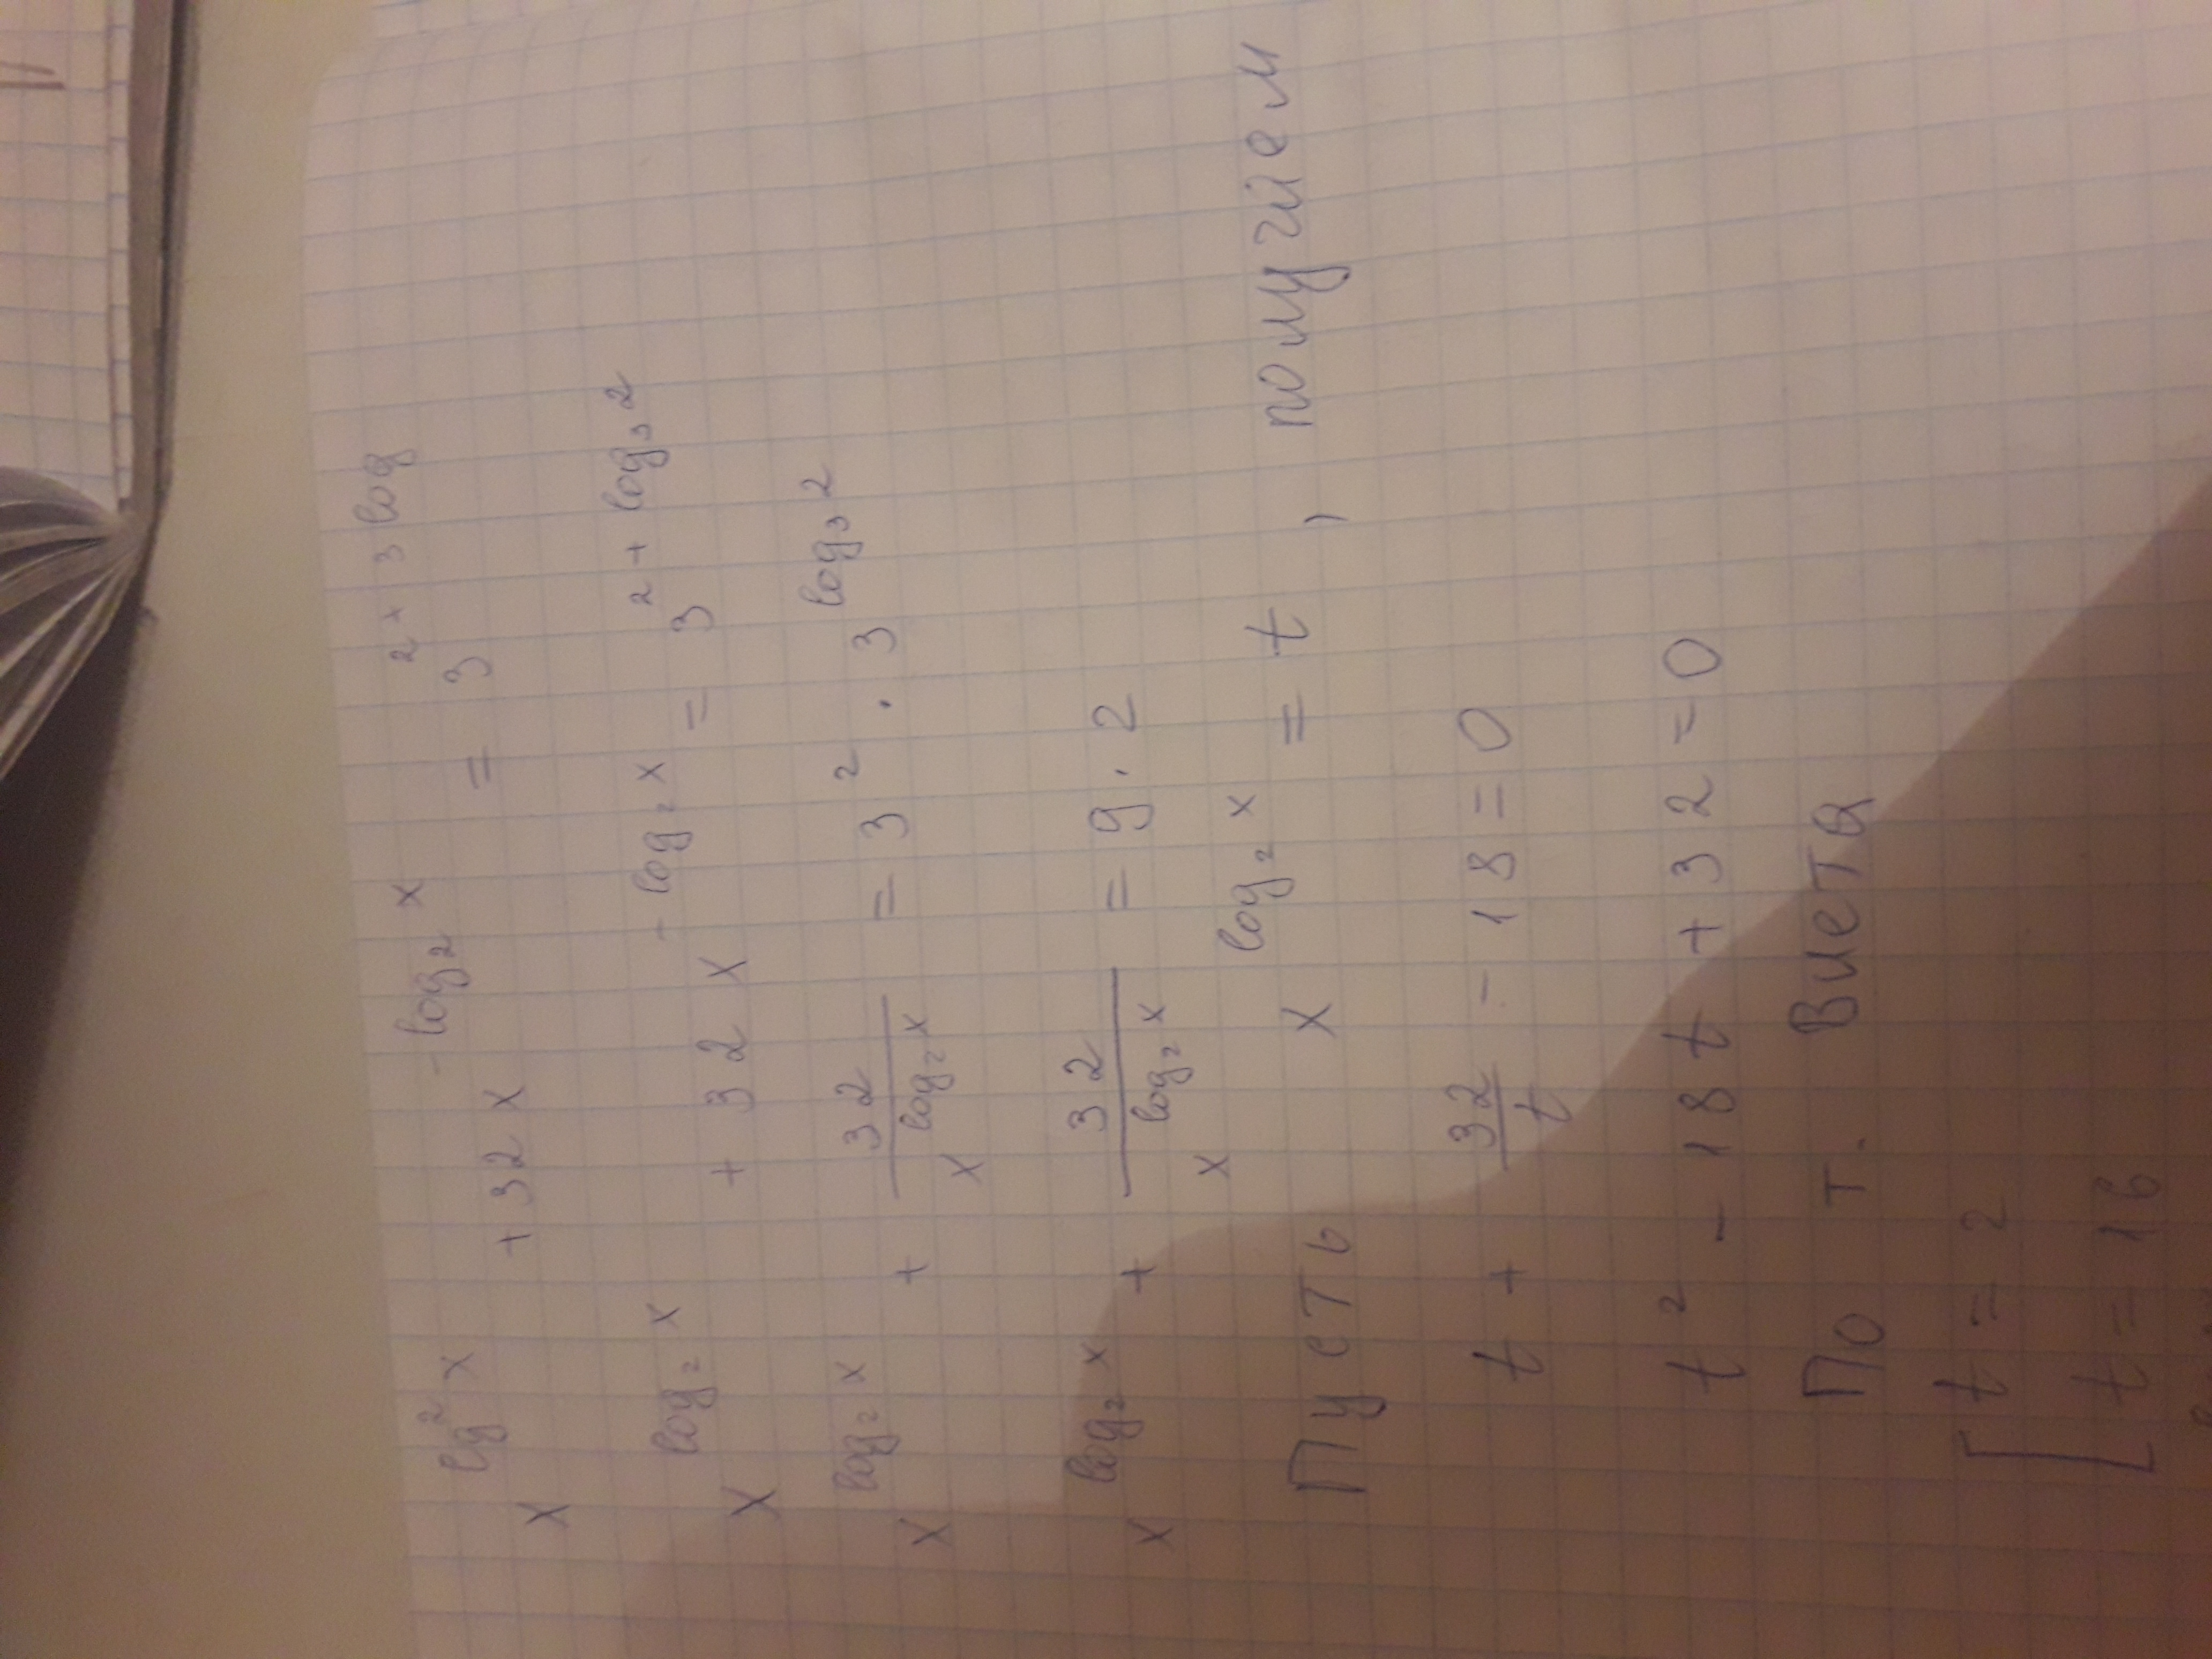 x^lg²x + 32x^-log₂x = 3^2+3log
x^log₂x + 32x^-log₂x = 3^2+log₃2
x^log₂x + 32/x^log₂x = 3² · 3^log₃2
x^log₂x + 32/x^log₂x = 9 · 2
Пусть x^log₂x = t, получаем
t + 32/t - 18 = 0
t² - 18t + 32 = 0
По т. Виета
[t = 2
t = 16